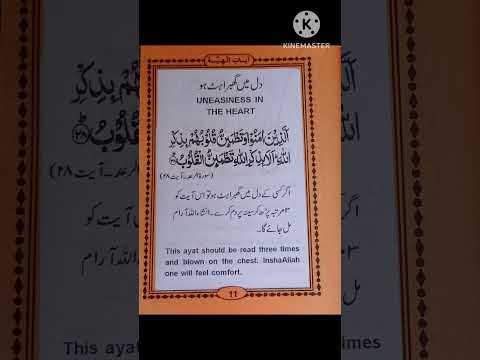 K
KINEMASTER
آیاتِ الٰہیّہ
دل میں گھبراہٹ ہو
UNEASINESS IN
THE HEART
اَلَّذِیْنَ اٰمَنُوْا وَتَطْمَئِنُّ قُلُوْبُهُمْ بِذِكْرِ
اللّٰهِ ؕ اَلَا بِذِكْرِ اللّٰهِ تَطْمَئِنُّ الْقُلُوْبُ ﴿۲۸﴾
(سورۃ الرعد۔ آیت ۲۸)
اگر کسی کے دل میں گھبراہٹ ہو تو اس آیت کو
۳ مرتبہ پڑھ کر سینہ پر دم کرے۔ انشاء اللہ آرام
مل جائے گا۔
This ayat should be read three times
and blown on the chest. InshaAllah
one will feel comfort.
11